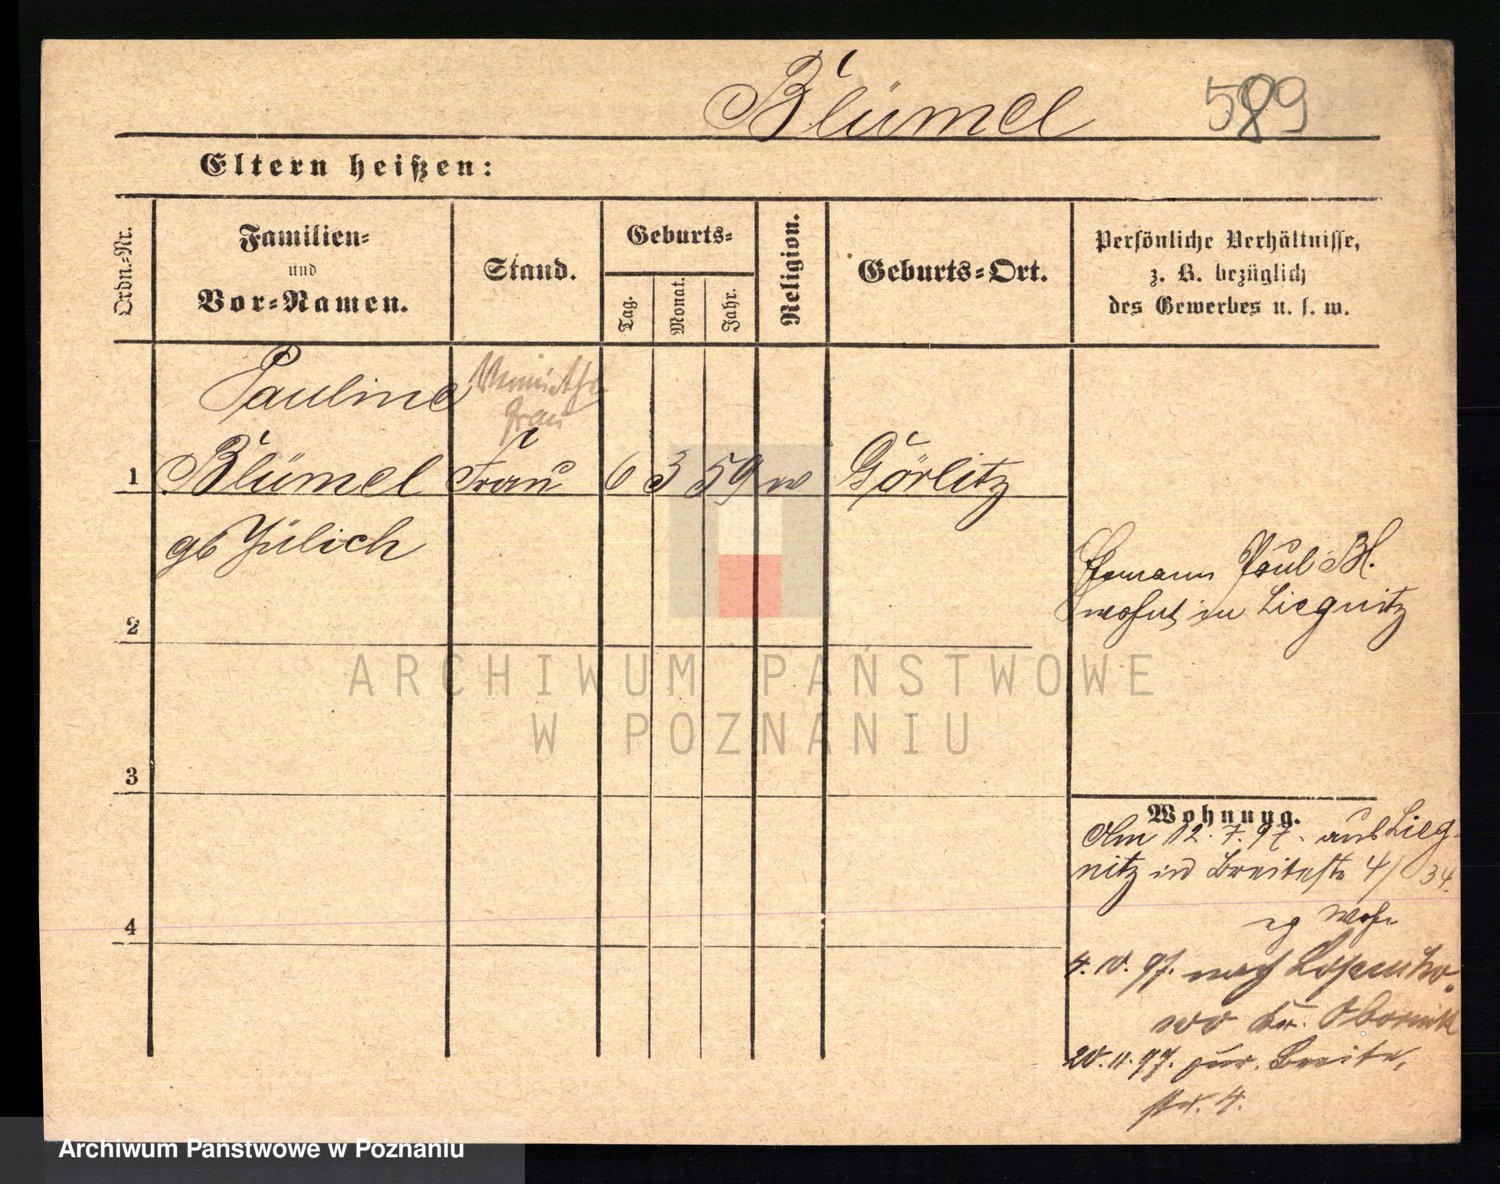 Blümel 589
Eltern heißen:
Ordn.-Nr.
Familien-
und
Vor-Namen.
Stand.
Geburts-
Tag.
Monat.
Jahr.
Religion.
Geburts-Ort.
Persönliche Verhältnisse,
z. B. bezüglich
des Gewerbes u. s. w.
Pauline
Frau
1 Blümel Frau 6 3 59 Görlitz
gb Jülich
Ehemann Paul Bl.
wohnt in Liegnitz
2
3
4
Wohnung.
Am 12.7.97. aus Lieg-
nitz in Breitestr 4/ 34.
4. 97. nach
Kr. Obornik
97. zur. Breite,
str. 4.
ARCHIWUM PAŃSTWOWE
W POZNANIU
Archiwum Państwowe w Poznaniu